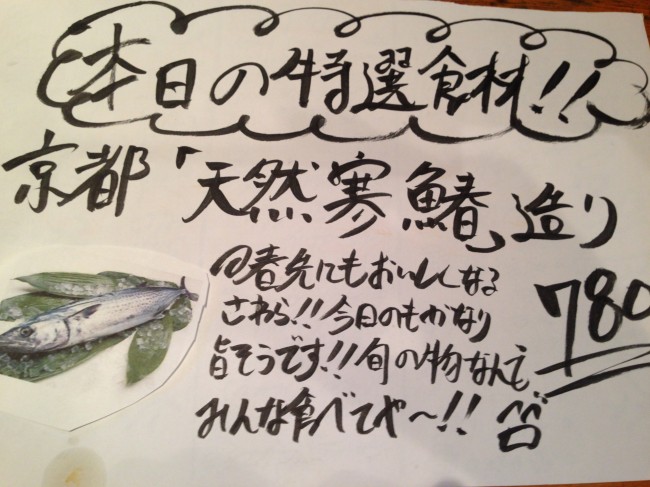 本日の特選食材!!
京都「天然寒鰆」造り
@春先にもおいしくなる
さわら!!今日のもかなり
旨そうです!!旬の物なんで
みんな食べてや〜!!
780